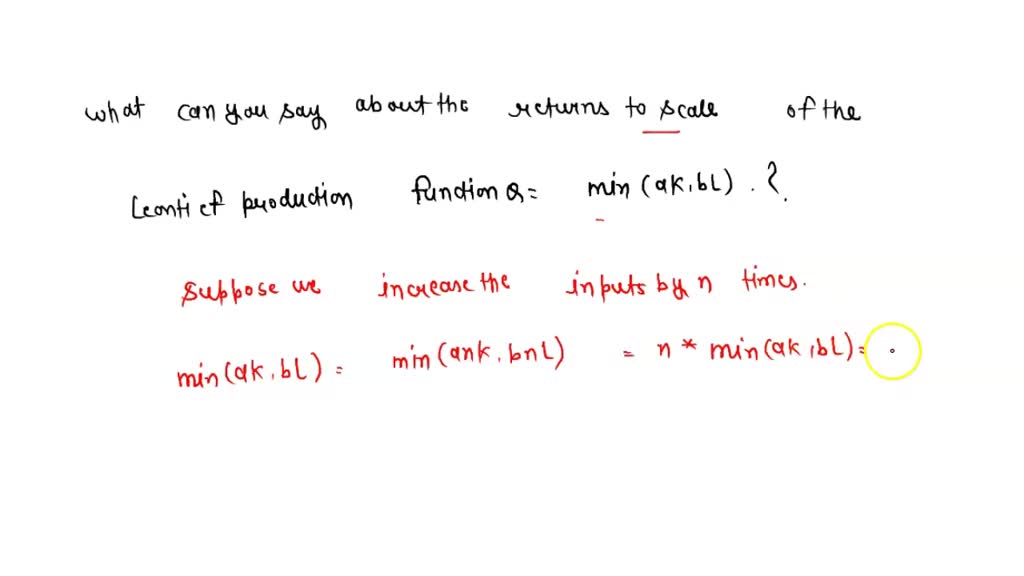 what can you say about the returns to scale of the
Leontief production function Q = min (ak, bL) . ?
suppose we increase the inputs by n times.
min (ak, bL) = min (ank, bnL) = n * min (ak, bL) =